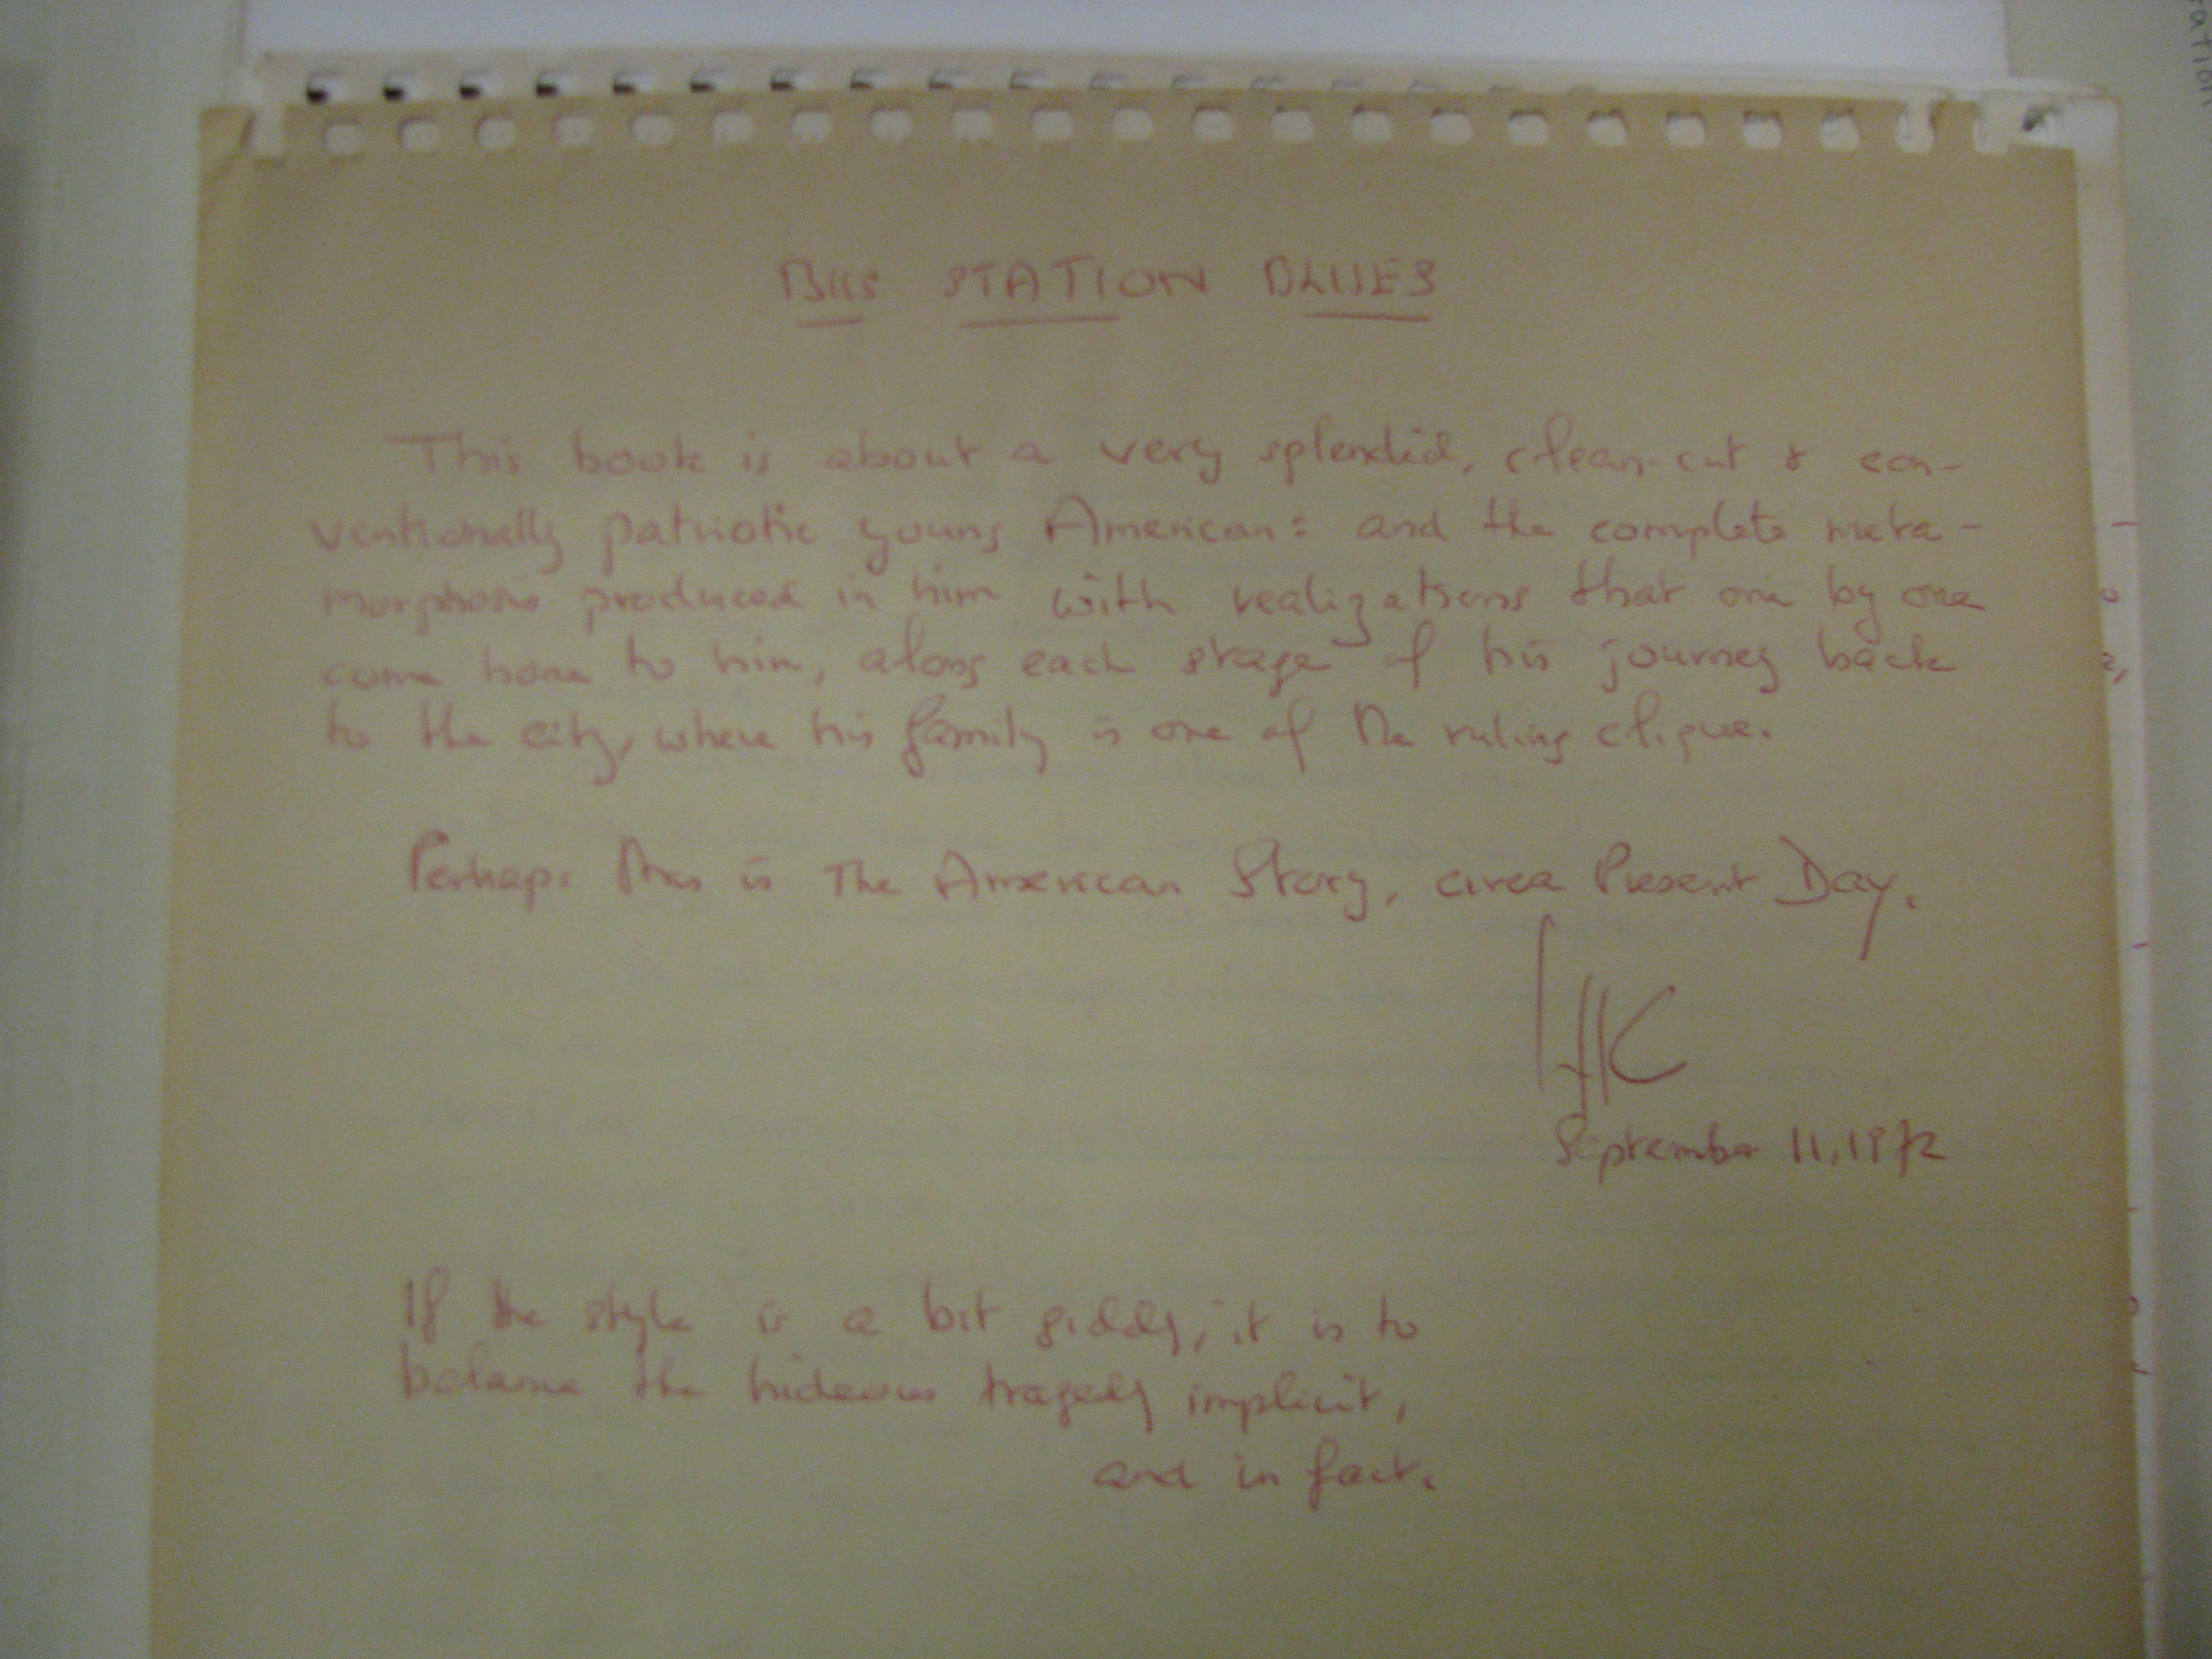 BUS STATION BLUES
This book is about a very splendid, clean-cut & con-
ventionally patriotic young American: and the complete meta-
morphosis produced in him with realizations that one by one
come home to him, along each stage of his journey back
to the city, where his family is one of the ruling clique.
Perhaps this is The American Story, circa Present Day.
September 11, 1972
If the style is a bit giddy, it is to
balance the hideous tragedy implicit,
and in fact.